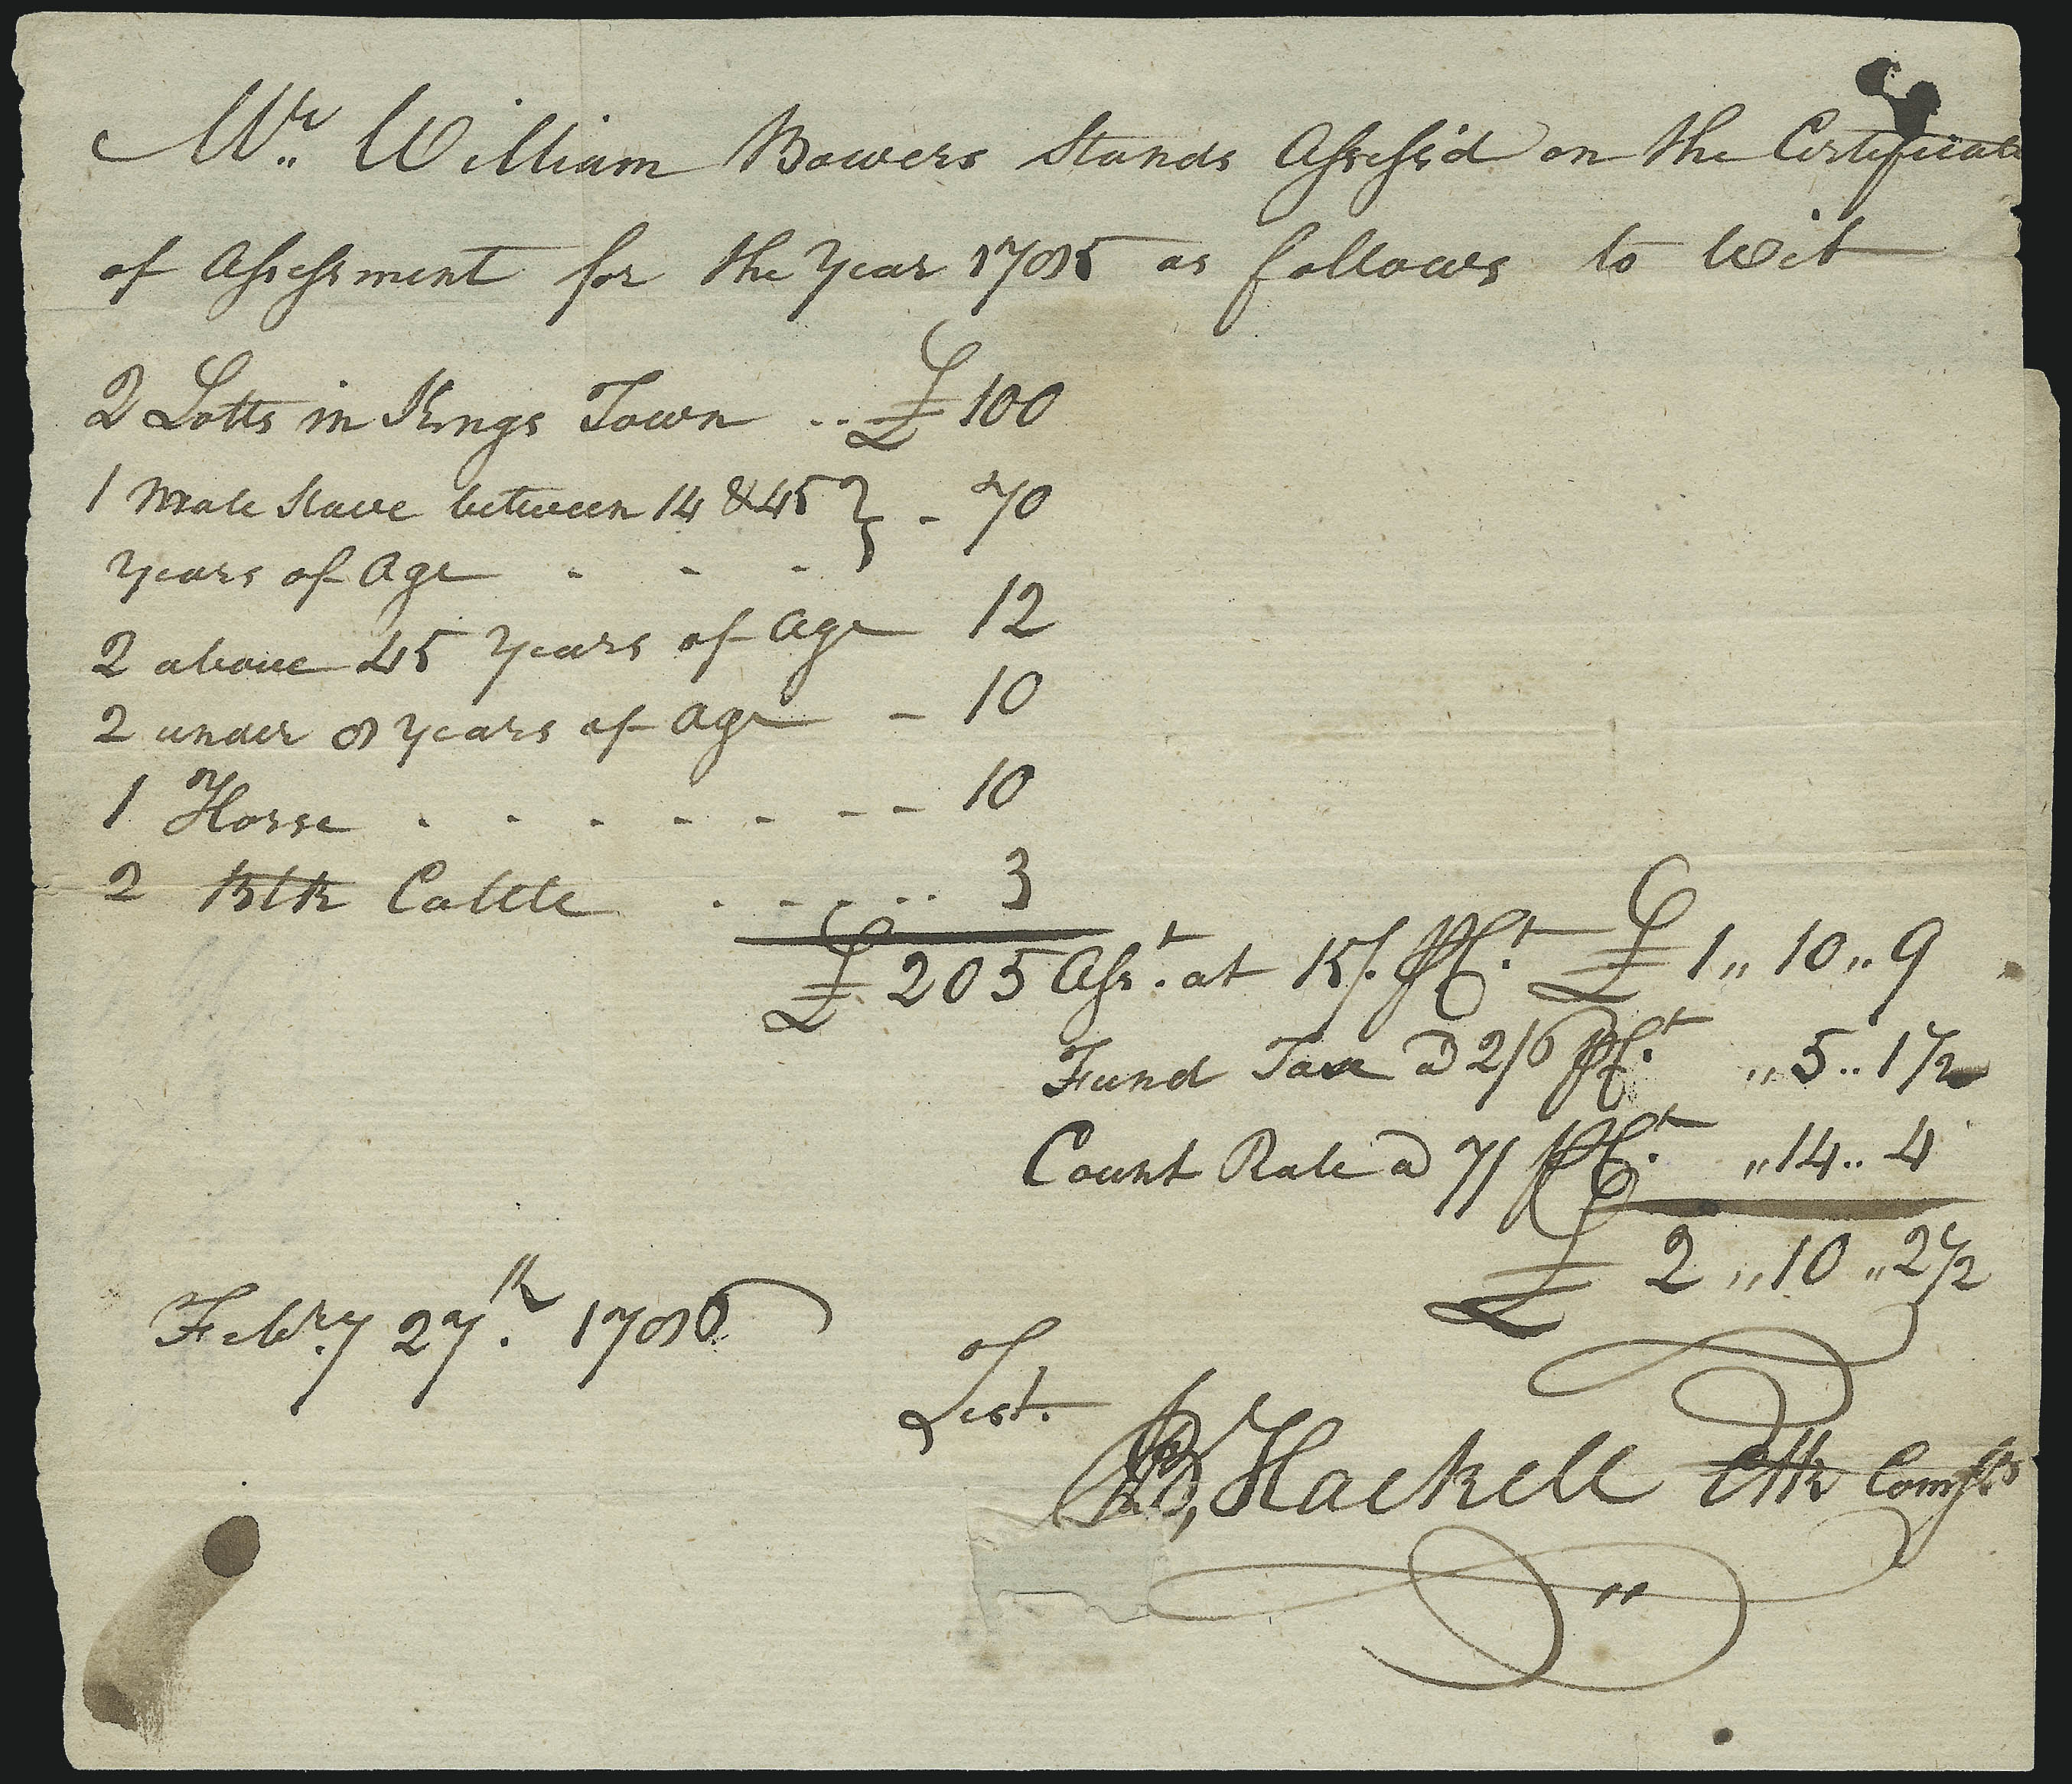 Mr. William Bowers Stands Assess'd on the Certificate
of Assessment for the Year 1785 as follows to Wit
2 Lotts in Kings Town .. £ 100
1 Male Slave between 14 & 45 } - 70
Years of Age - - -
2 above 45 Years of Age 12
2 under 8 Years of Age - 10
1 Horse - - - - - - - 10
2 Blk Cattle . - - - .. 3
£ 205 Asst. at 15/. pCt. £ 1,, 10,, 9
Fund Tax @ 2/6 pCt. ,, 5.. 1 1/2
Count Rate @ 7/ pCt. ,, 14.. 4
£ 2 ,, 10 ,, 2 1/2
Febry. 27th. 1786
Test.
Hackell Clk Comrs